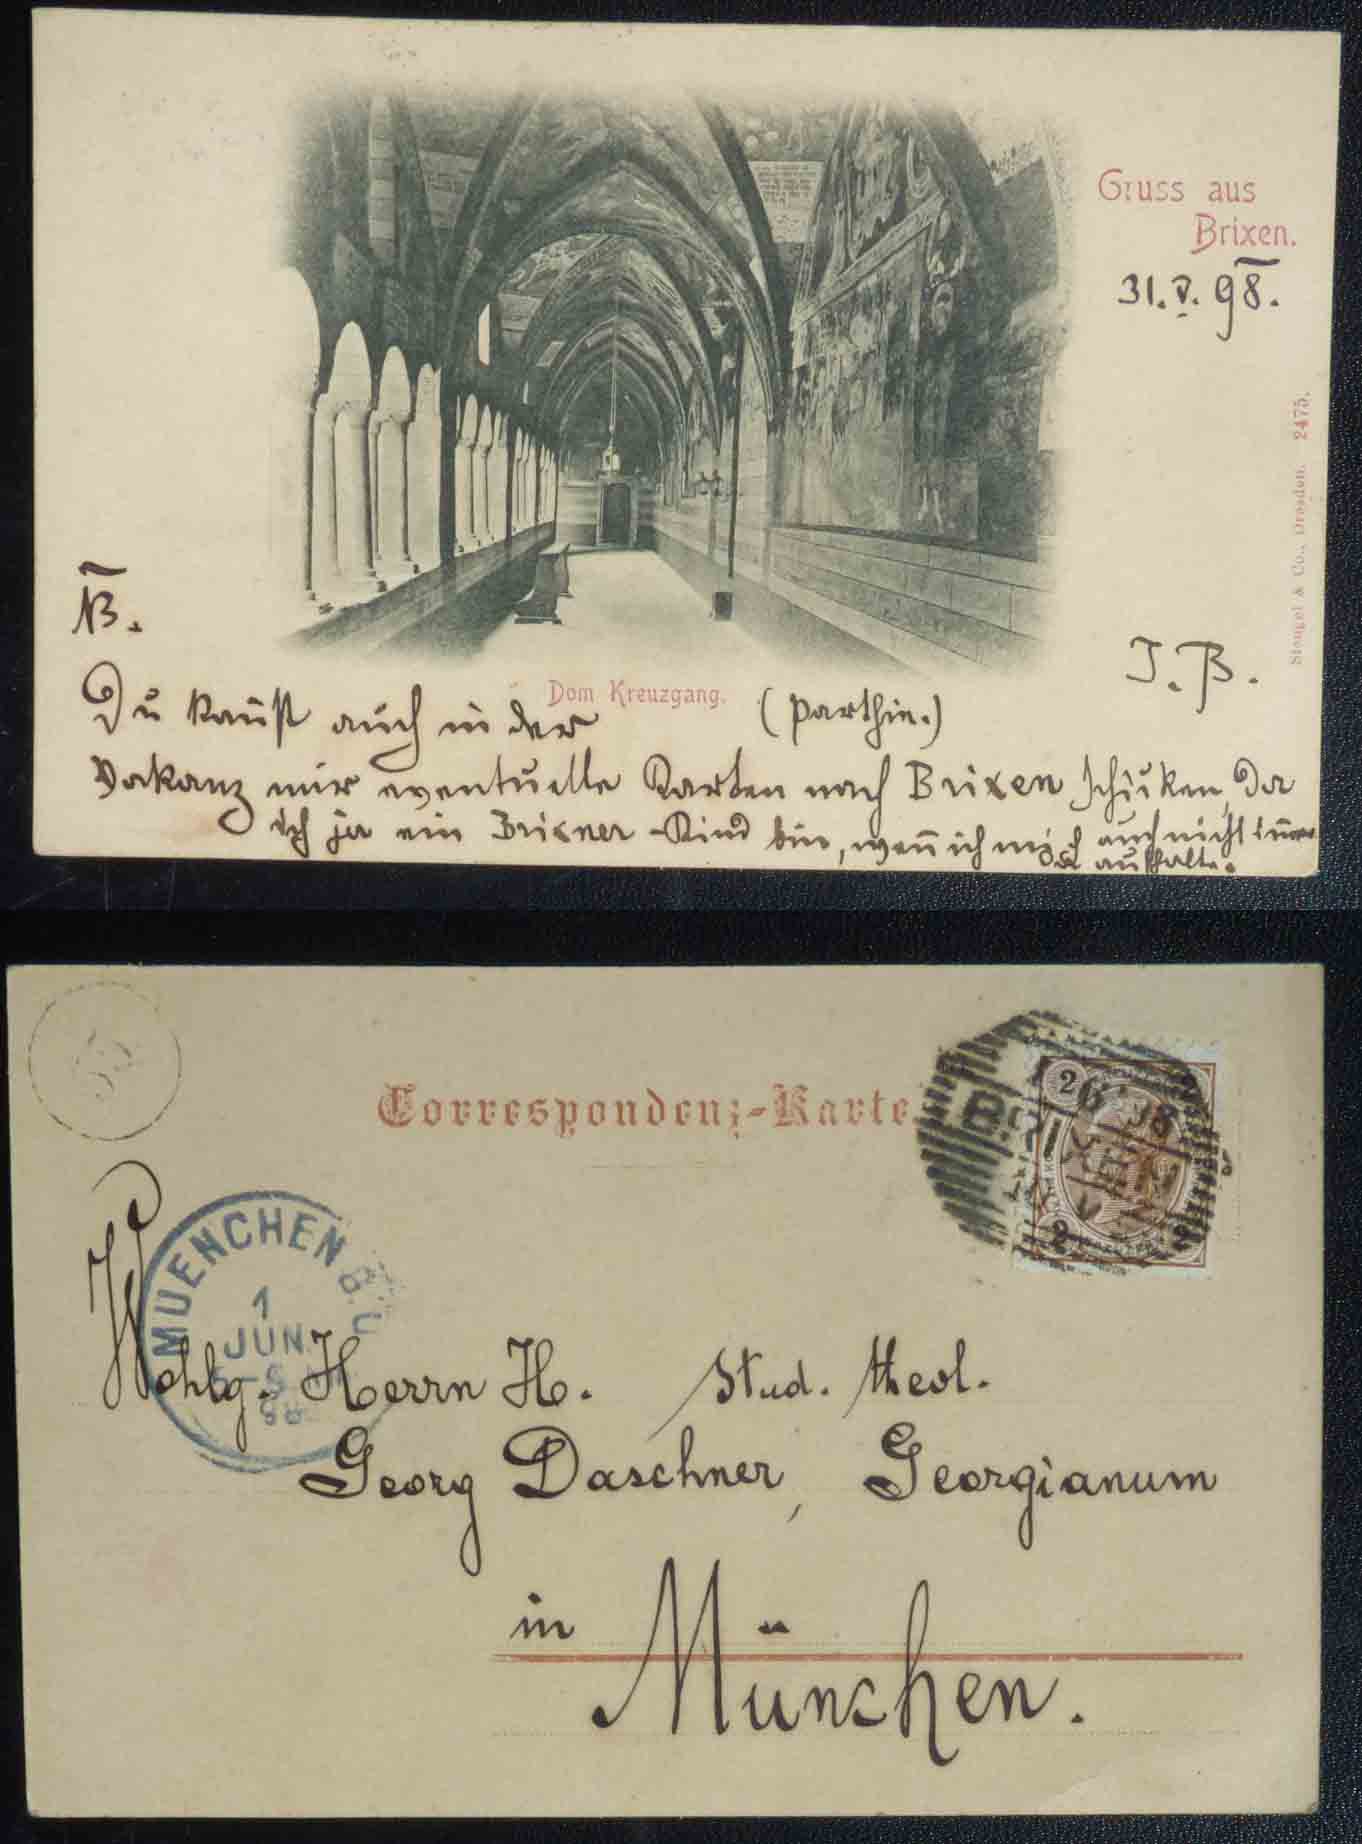 Gruss aus
Brixen.
31. V. 98.
Stengel & Co., Dresden. 2475.
NB.
J. B.
Dom Kreuzgang.
Du kannst auch in der (Parthie.)
Vakanz mir eventuelle Karten nach Brixen schicken, da
ich ja ein Brixner-Kind bin, wenn ich mich auch nicht immer
da aufhalte.
55
Correspondenz-Karte
BRIXEN
2
2 2
MUENCHEN B.C.
1
JUN.
98
Wohlg. Herrn H. Stud. theol.
Georg Daschner, Georgianum
in
München.